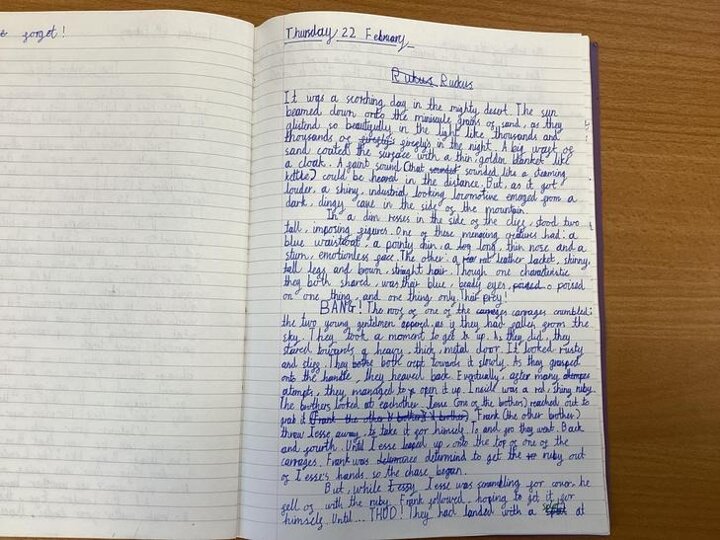 e forget!
Thursday 22 February
Rukus Rukus
It was a scorching day in the mighty desert. The sun
beamed down onto the miniscule grains of sand, as they
glistend so beautifully in the light like thousands and
thousands of fireflys in the night. A big waft of
sand coated the surface with a thin, golden blanket like
a cloak. A faint sound (that sounded like a steaming
kettle) could be heared in the distance. But, as it got
louder, a shiny, industrial looking locomotive emerged from a
dark, dingy cave in the side of the mountain.
In a dim resses in the side of the cliff, stood two
tall, imposing figures. One of these menacing creatures had: a
blue waistcoat, a pointy chin, a long, thin nose and a
sturn, emotionless face. The other: a red leather jacket, skinny,
tall legs and brown, straight hair. Though one characteristic
they both shared, was their blue, beady eyes, poised
on one thing, and one thing only. Thar prey!
BANG! The roof of one of the carrages crumbled:
the two young gentelmen as if they had fallen from the
sky. They took a moment to get up. As they did, they
stared towards a heavy, thick, metal door. It looked rusty
and stiff. They both crept towards it slowly. As they grasped
onto the handle, they heaved back. Eventually, after many
atempts, they managed to open it up. Inside was a red, shiny ruby.
The brothers looked at eachother. Jesse (one of the brothers) reached out to
grab it (Frank the other brother) Frank (the other brother)
threw Jesse away, to take it for himself. To and fro they went. Back
and fourth. Until Jesse leaped up, onto the top of one of the
carrages. Frank was determind to get the ruby out
of Jesse's hands, so the chase began.
But, while Jesse was scrambling for cover, he
fell of with the ruby. Frank followed, hoping to get it for
himself. Until... THUD! They had landed with a at